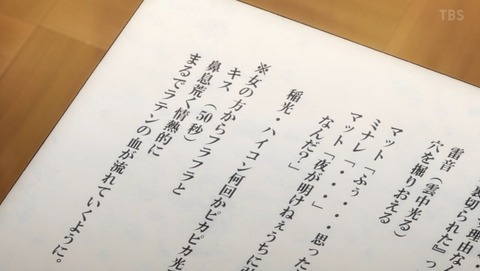 TBS
裏切られた』っ
雷音（雲中光る）
穴を掘りおえる
マット「ふぅ・・・・思った
ミナレ「・・・・」
マット「夜が明けねぇうちに
なんだ？」
稲光・ハイコン何回かピカピカ光
※女の方からフラフラと
キス（50秒）
鼻息荒く情熱的に
まるでラテンの血が流れていくように。